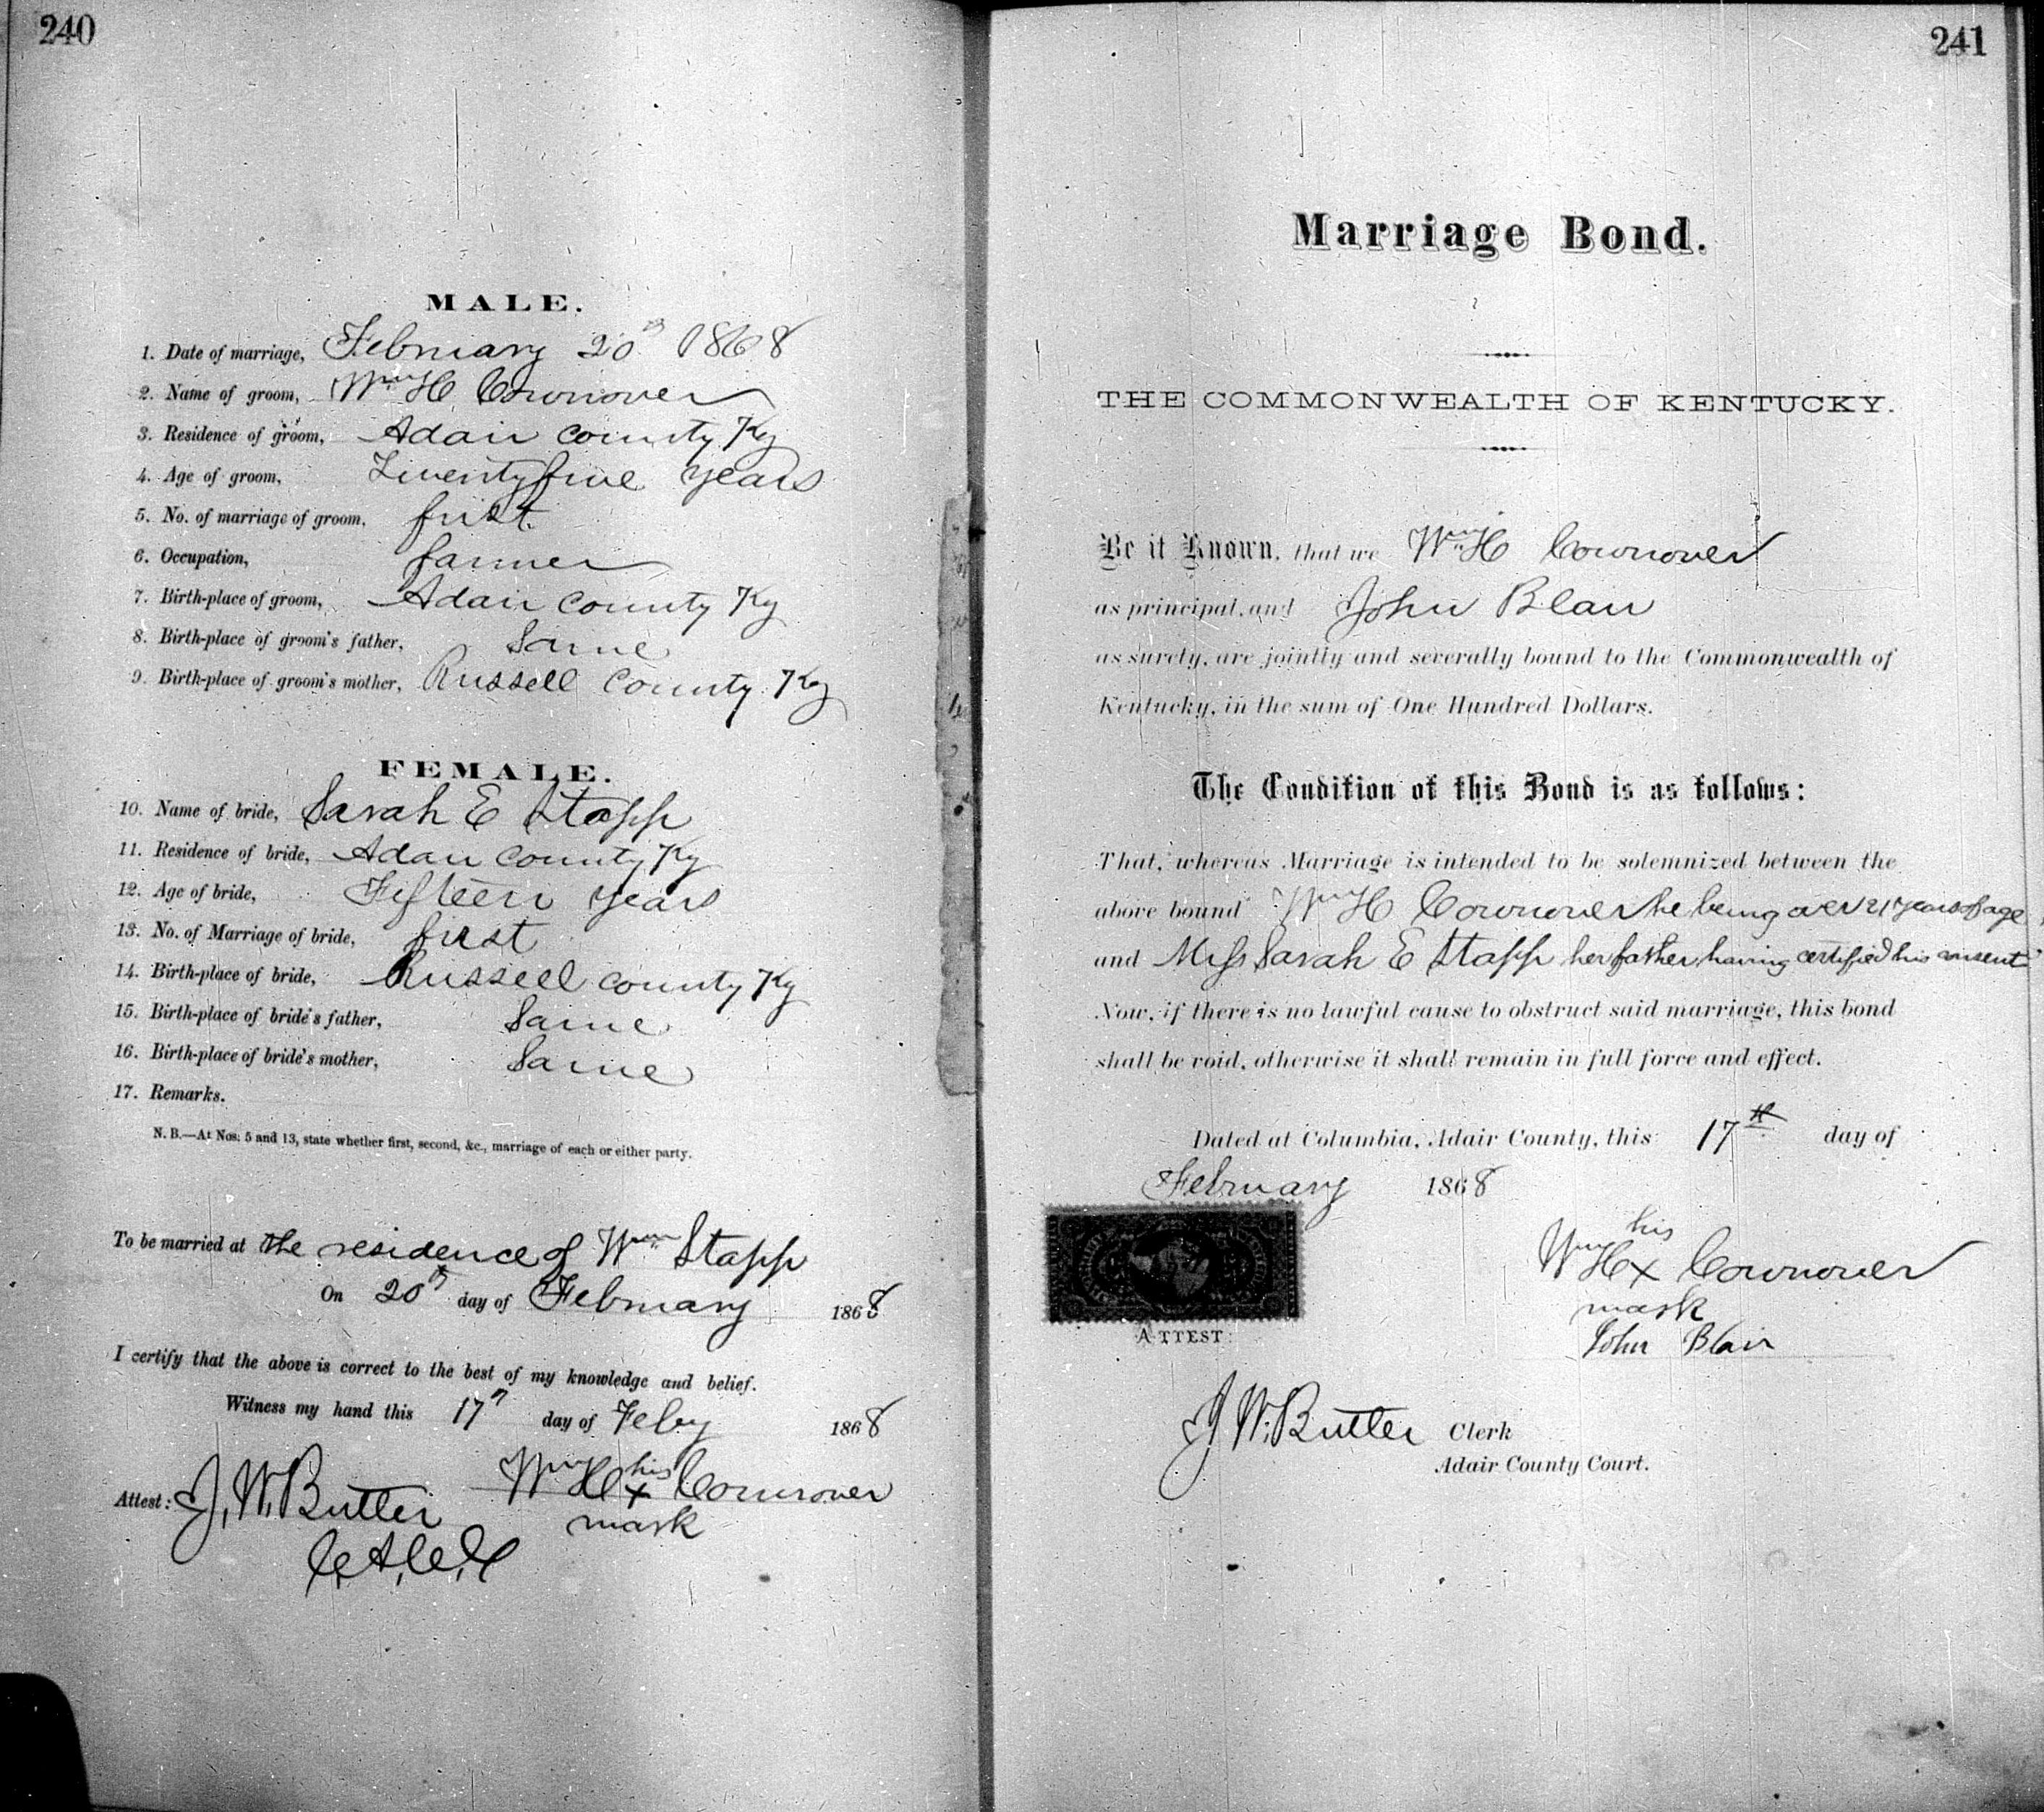 240
MALE.
1. Date of marriage, February 20th 1868
2. Name of groom, Wm H Cownover
3. Residence of groom, Adair County Ky
4. Age of groom, Twenty five years
5. No. of marriage of groom, first
6. Occupation, farmer
7. Birth-place of groom, Adair County Ky
8. Birth-place of groom's father, Same
9. Birth-place of groom's mother, Russell County Ky
FEMALE.
10. Name of bride, Sarah E Stapp
11. Residence of bride, Adair County Ky
12. Age of bride, Fifteen years
13. No. of Marriage of bride, first
14. Birth-place of bride, Russell County Ky
15. Birth-place of bride's father, Same
16. Birth-place of bride's mother, Same
17. Remarks.
N. B.—At Nos. 5 and 13, state whether first, second, &c., marriage of each or either party.
To be married at the residence of Wm Stapp
On 20th day of February 1868
I certify that the above is correct to the best of my knowledge and belief.
Witness my hand this 17th day of Feby 1868
his
Attest: J. W. Butler Wm H x Cownover
mark
C.A.C.C
241
Marriage Bond.
THE COMMONWEALTH OF KENTUCKY.
Be it Known, that we Wm H Cownover
as principal, and John Blair
as surety, are jointly and severally bound to the Commonwealth of
Kentucky, in the sum of One Hundred Dollars.
The Condition of this Bond is as follows:
That, whereas Marriage is intended to be solemnized between the
above bound Wm H Cownover he being over 21 years of age
and Miss Sarah E Stapp her father having certified his consent
Now, if there is no lawful cause to obstruct said marriage, this bond
shall be void, otherwise it shall remain in full force and effect.
Dated at Columbia, Adair County, this 17th day of
February 1868
his
Wm H x Cownover
mark
John Blair
ATTEST:
J. W. Butler Clerk
Adair County Court.